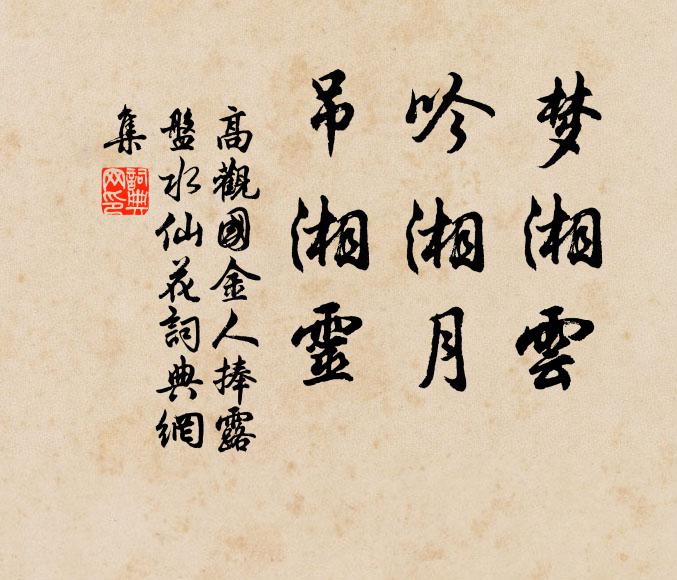 梦湘雲
吟湘月
吊湘靈
高觀國金人捧露
盤水仙花詞典網
集
詞典
网印